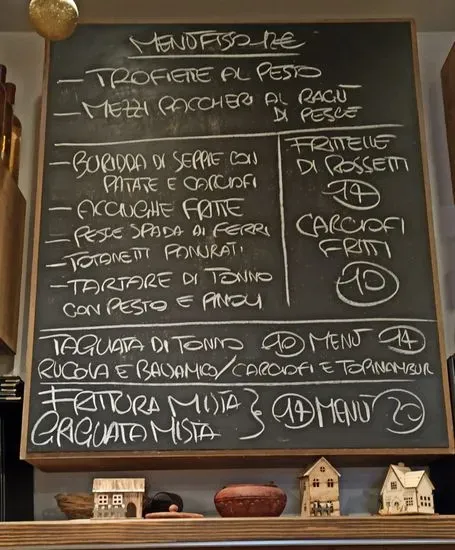 MENÙ FISSO 12€
– TROFIETTE AL PESTO
– MEZZI PACCHERI AL RAGÙ
DI PESCE
– BURIDDA DI SEPPIE CON
PATATE E CARCIOFI
– ACCIUGHE FRITTE
– PESCE SPADA AI FERRI
– TOTANETTI PANURATI
– TARTARE DI TONNO
CON PESTO E PINOLI
FRITTELLE
DI ROSSETTI
CARCIOFI
FRITTI
10
TAGLIATA DI TONNO 10 MENÙ 14
RUCOLA E BALSAMICO/CARCIOFI E TOPINAMBUR
FRITTURA MISTA
GRIGLIATA MISTA
MENÙ 20